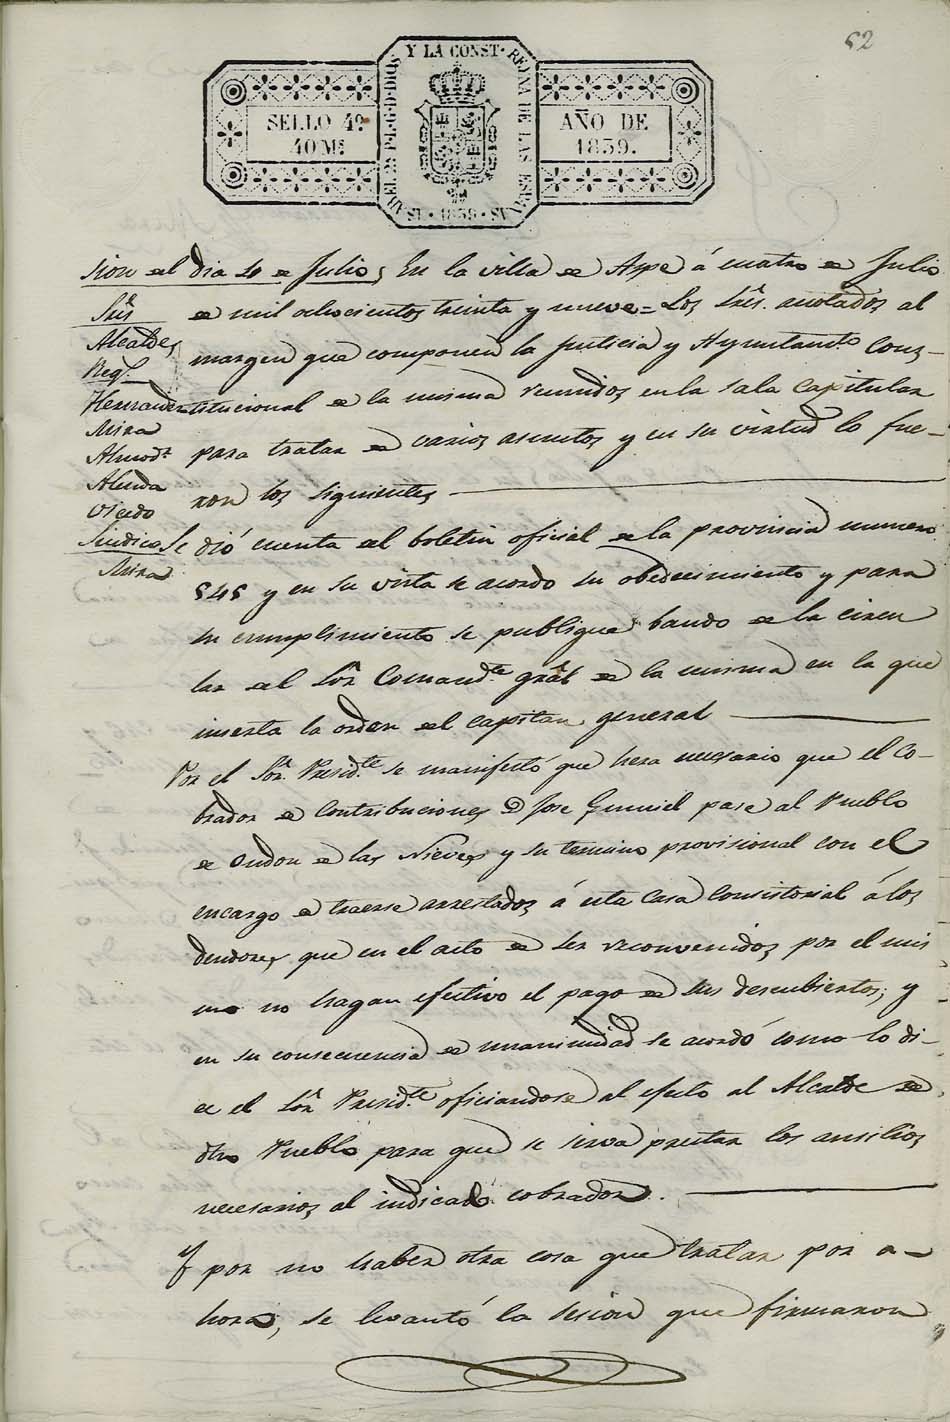 52
Y LA CONST. REYNA DE LAS ESPAÑAS
ISABEL 2ª P.L.G.D.DIOS
SELLO 4º
40 Mˢ
AÑO DE
1839.
1839
sion del dia 4 de Julio, En la villa de Aspe á cuatro de Julio
Sres
Alcaldes
Reg.
Hernandez
Mira
Almodr
Alenda
Vicedo
Sindico
Mira
de mil ochocientos treinta y nueve = Los Sres. anotados al
margen que componen la Justicia y Ayuntamto. Cons-
titucional de la misma reunidos en la sala capitular
para tratar de varios asuntos y en su virtud lo fue-
ron los siguientes
Se dió cuenta del boletin oficial de la provincia numero
545 y en su vista se acordo su obedecimiento y para
su cumplimiento se publique bando de la circu
lar del Sor Comandte. gral de la misma en la que
inserta la orden del capitan general
Por el Sor. Presidte. se manifestó que hera necesario que el Co-
brador de Contribuciones D. Jose Gumiel pase al Pueblo
de Ondon de las Nieves y su termino provisional con el
encargo de traerse arrestados á esta Casa Consistorial á los
deudores que en el acto de ser reconvenidos por el mis
mo no hagan efectivo el pago de sus descubiertos; y
en su consecuencia de unanimidad se acordó como lo di-
ce el Sor Presidte. oficiandose al efecto al Alcalde de
dho Pueblo para que se sirva prestar los ausilios
necesarios al indicado cobrador.
Y por no haber otra cosa que tratar por a-
hora, se levantó la sesion que firmaron